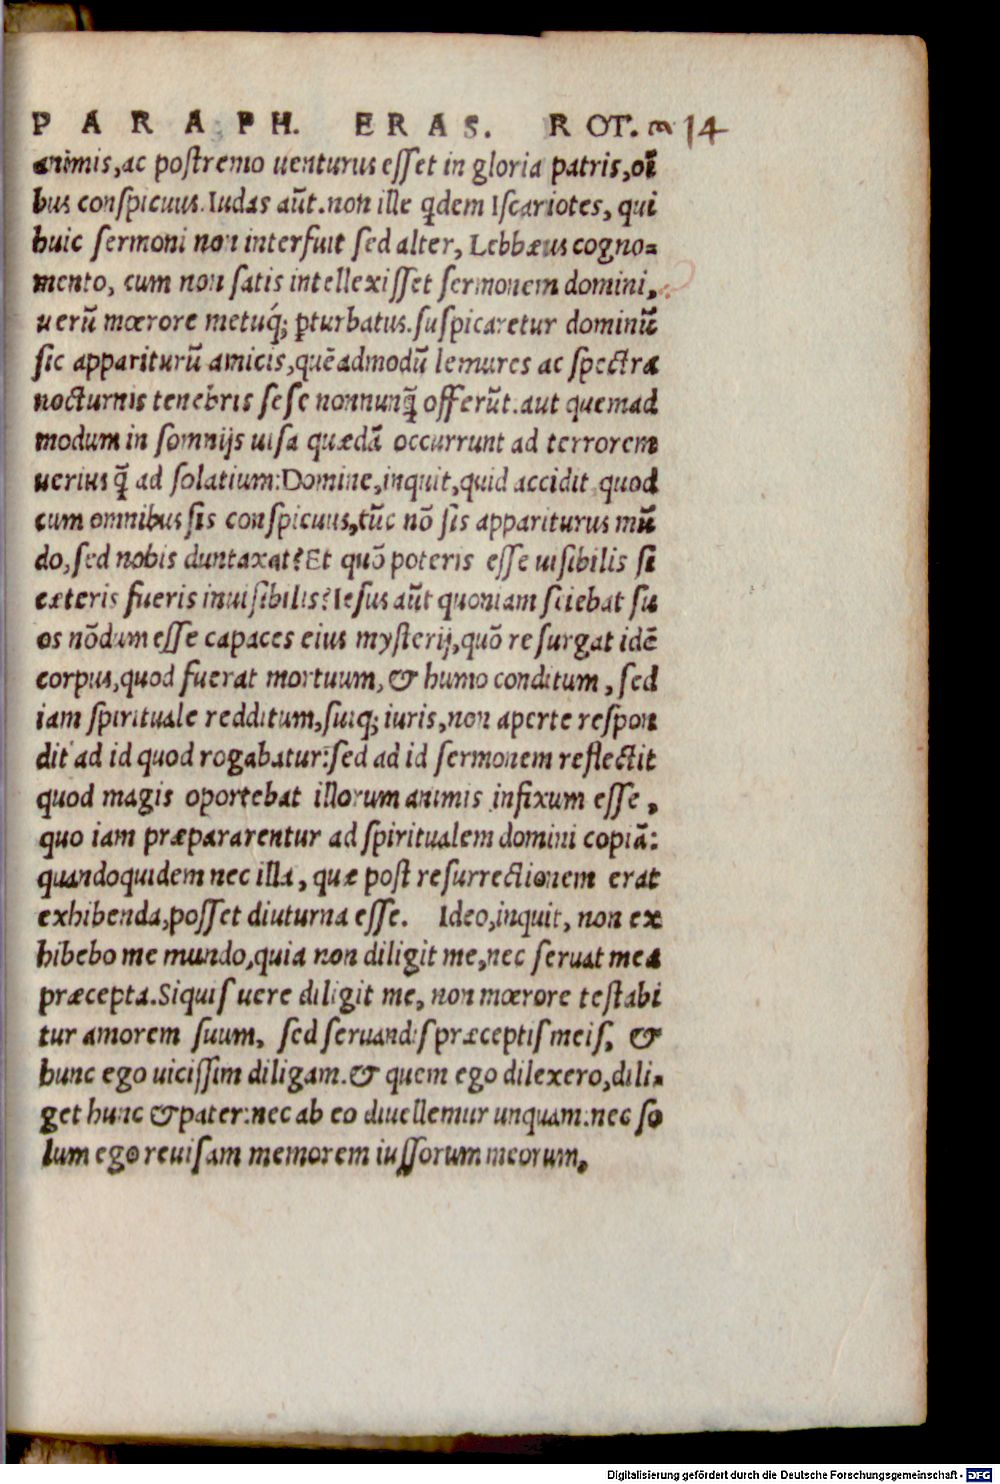 PARAPH. ERAS. ROT. 14
animis, ac postremo uenturus esset in gloria patris, oĩ
bus conspicuus. Iudas aũt. non ille q̃dem Iscariotes, qui
huic sermoni non interfuit sed alter, Lebbæus cogno=
mento, cum non satis intellexisset sermonem domini,
uerũ mœrore metuq́; ꝑturbatus. suspicaretur dominũ
sic appariturũ amicis, quẽadmodũ lemures ac spectra
nocturnis tenebris sese nonnunq̃ offerũt. aut quemad
modum in somnijs uisa quædã occurrunt ad terrorem
uerius q̃ ad solatium: Domine, inquit, quid accidit quod
cum omnibus sis conspicuus, tũc nõ sis appariturus mũ
do, sed nobis duntaxat? Et quõ poteris esse uisibilis si
cæteris fueris inuisibilis? Iesus aũt quoniam sciebat su
os nõdum esse capaces eius mysterij, quõ resurgat idẽ
corpus, quod fuerat mortuum, & humo conditum, sed
iam spirituale redditum, suiq; iuris, non aperte respon
dit ad id quod rogabatur: sed ad id sermonem reflectit
quod magis oportebat illorum animis infixum esse,
quo iam præpararentur ad spiritualem domini copiã:
quandoquidem nec illa, quæ post resurrectionem erat
exhibenda, posset diuturna esse. Ideo, inquit, non ex
hibebo me mundo, quia non diligit me, nec seruat mea
præcepta. Siquis uere diligit me, non mœrore testabi
tur amorem suum, sed seruandis præceptis meis, &
hunc ego uicissim diligam. & quem ego dilexero, dili=
get hunc & pater: nec ab eo diuellemur unquam: nec so
lum ego reuisam memorem iussorum meorum,
Digitalisierung gefördert durch die Deutsche Forschungsgemeinschaft - DFG